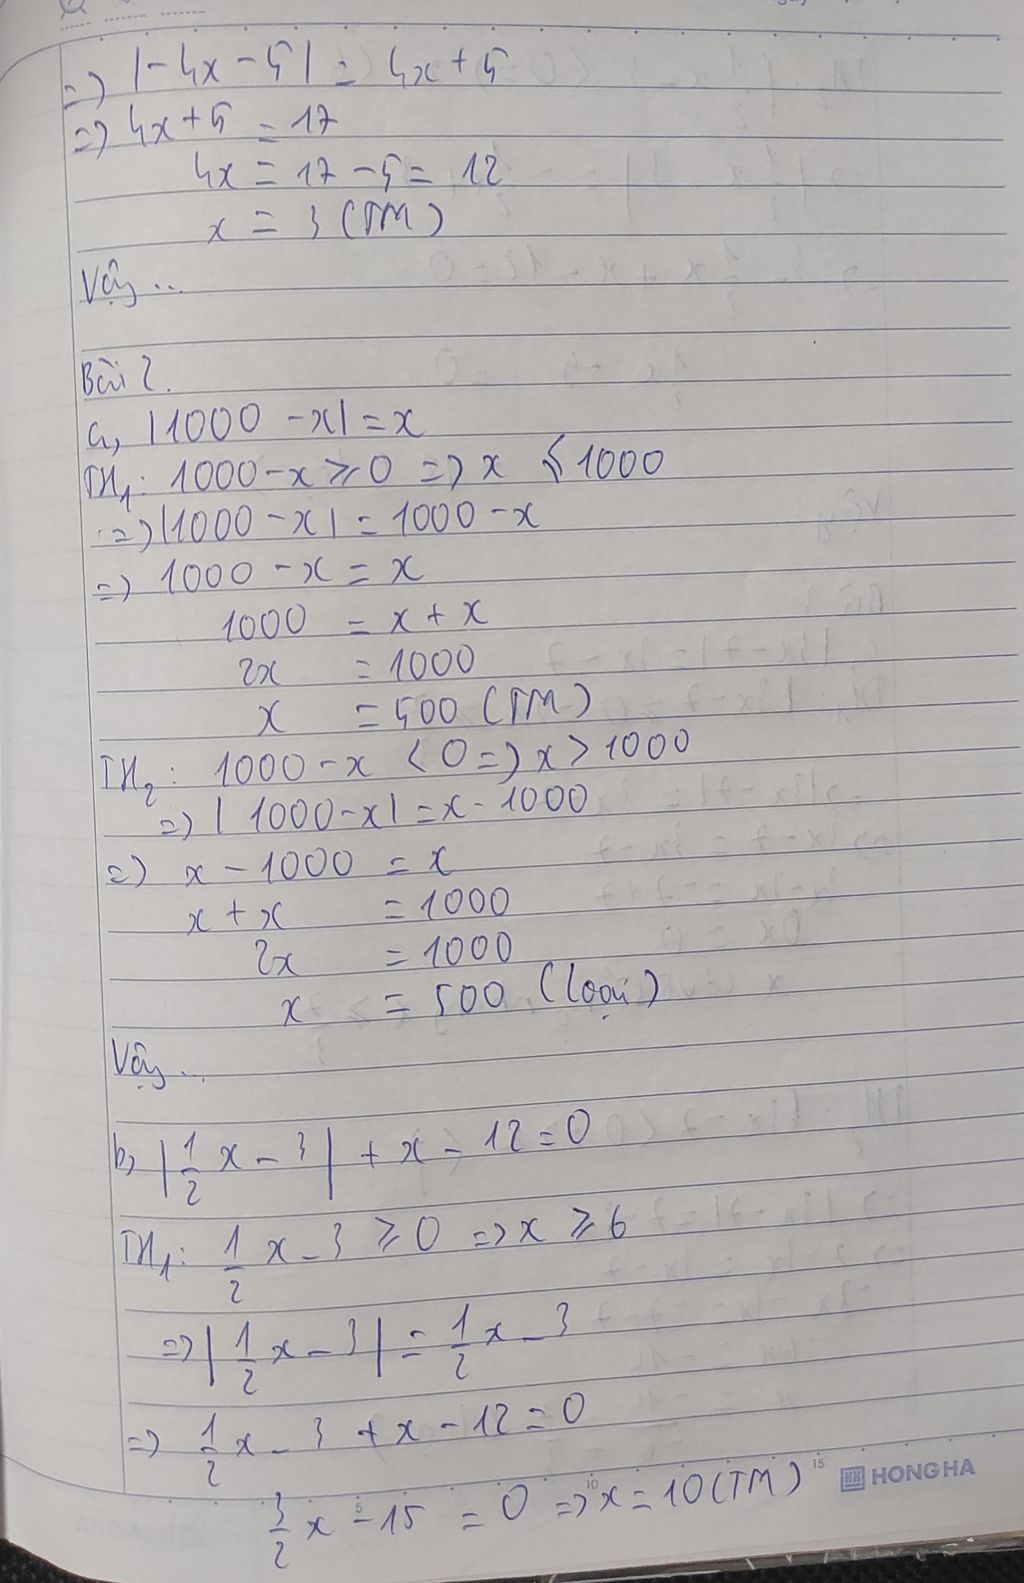 => |-4x - 5| = 4x + 5
=> 4x + 5 = 17
4x = 17 - 5 = 12
x = 3 (TM)
Vậy ...
Bài 2.
a, |1000 - x| = x
TH₁: 1000 - x ⩾ 0 => x ⩽ 1000
=> |1000 - x| = 1000 - x
=> 1000 - x = x
1000 = x + x
2x = 1000
x = 500 (TM)
TH₂: 1000 - x < 0 => x > 1000
=> |1000 - x| = x - 1000
=> x - 1000 = x
x + x = 1000
2x = 1000
x = 500 (loại)
Vậy ...
b, |1/2 x - 3| + x - 12 = 0
TH₁: 1/2 x - 3 ⩾ 0 => x ⩾ 6
=> |1/2 x - 3| = 1/2 x - 3
=> 1/2 x - 3 + x - 12 = 0
5 10 15 HONG HA
3/2 x - 15 = 0 => x = 10 (TM)